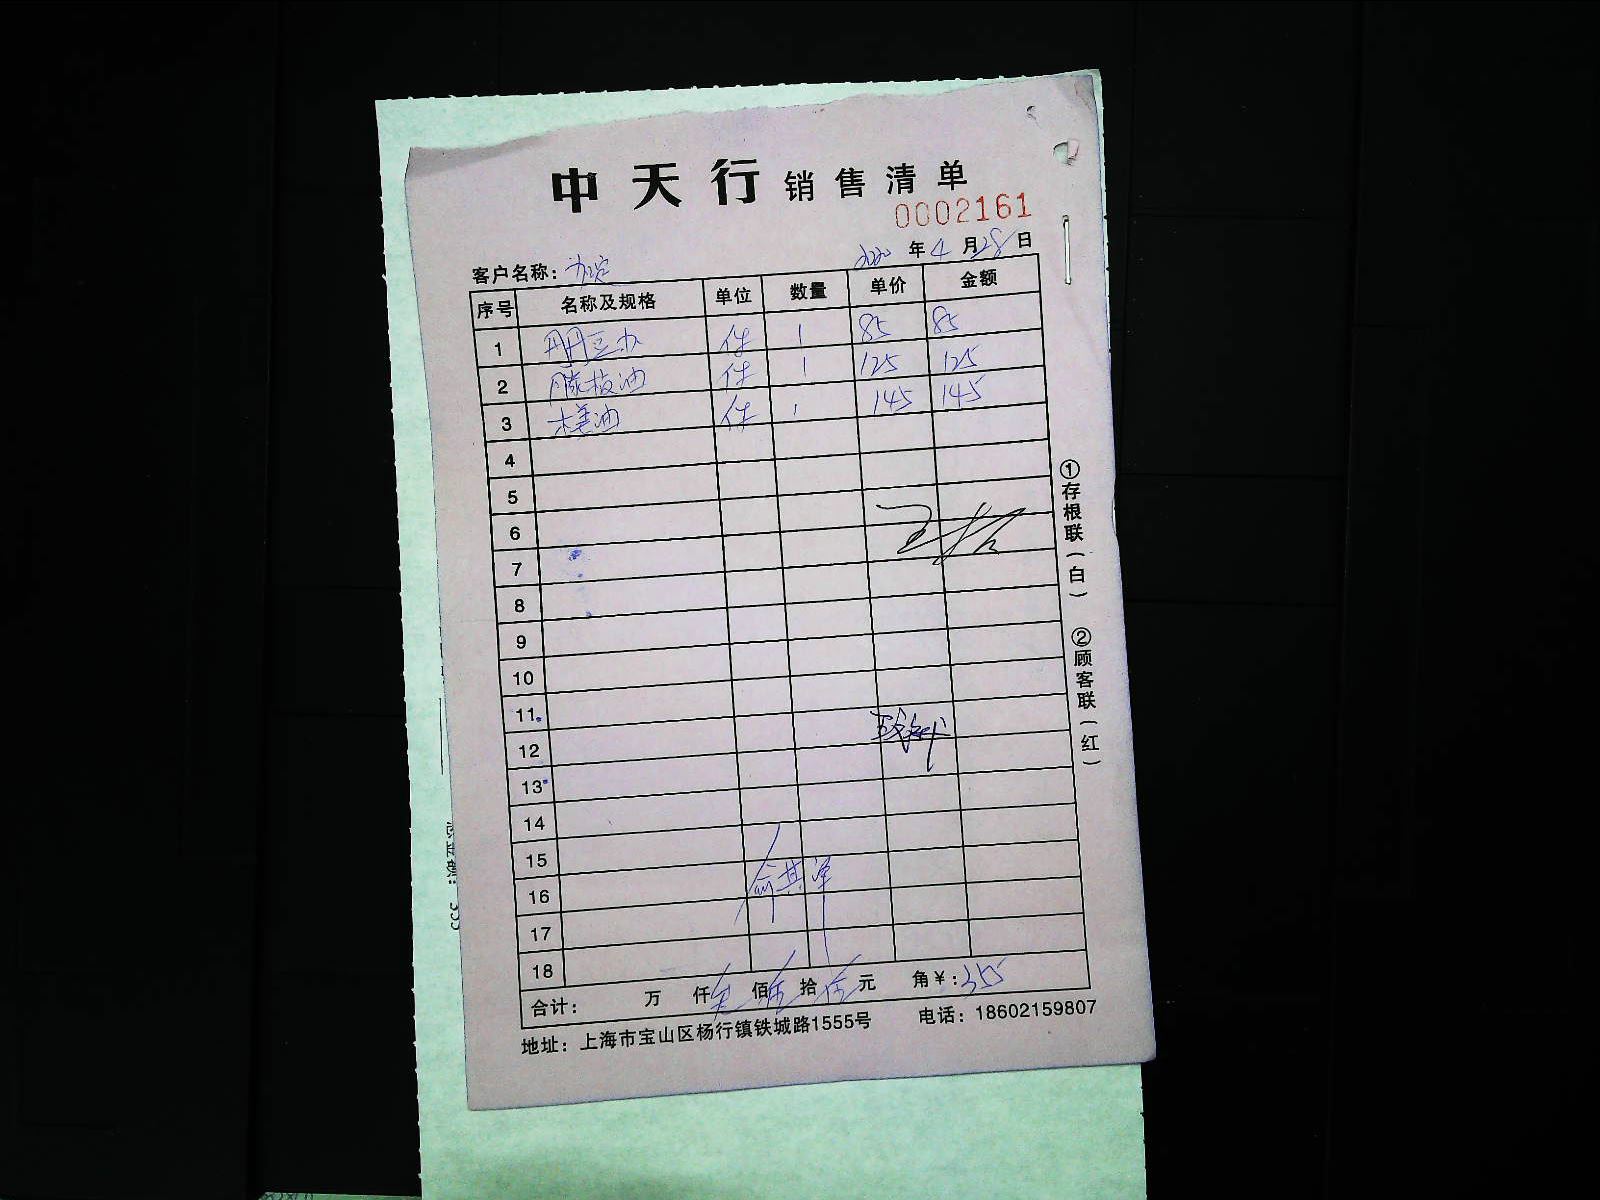 中天行 销售清单
0002161
客户名称：
2020 年 4 月 28 日
序号 名称及规格 单位 数量 单价 金额
1 丹丹豆办 件 1 85 85
2 藤枝油 件 1 125 125
3 件 1 145 145
4
5
6
7
8
9
10
11
12
13
14
15
16
17
18
合计： 万 仟 佰 拾 元 角￥：355
地址：上海市宝山区杨行镇铁城路1555号 电话：18602159807
①存根联（白）
②顾客联（红）